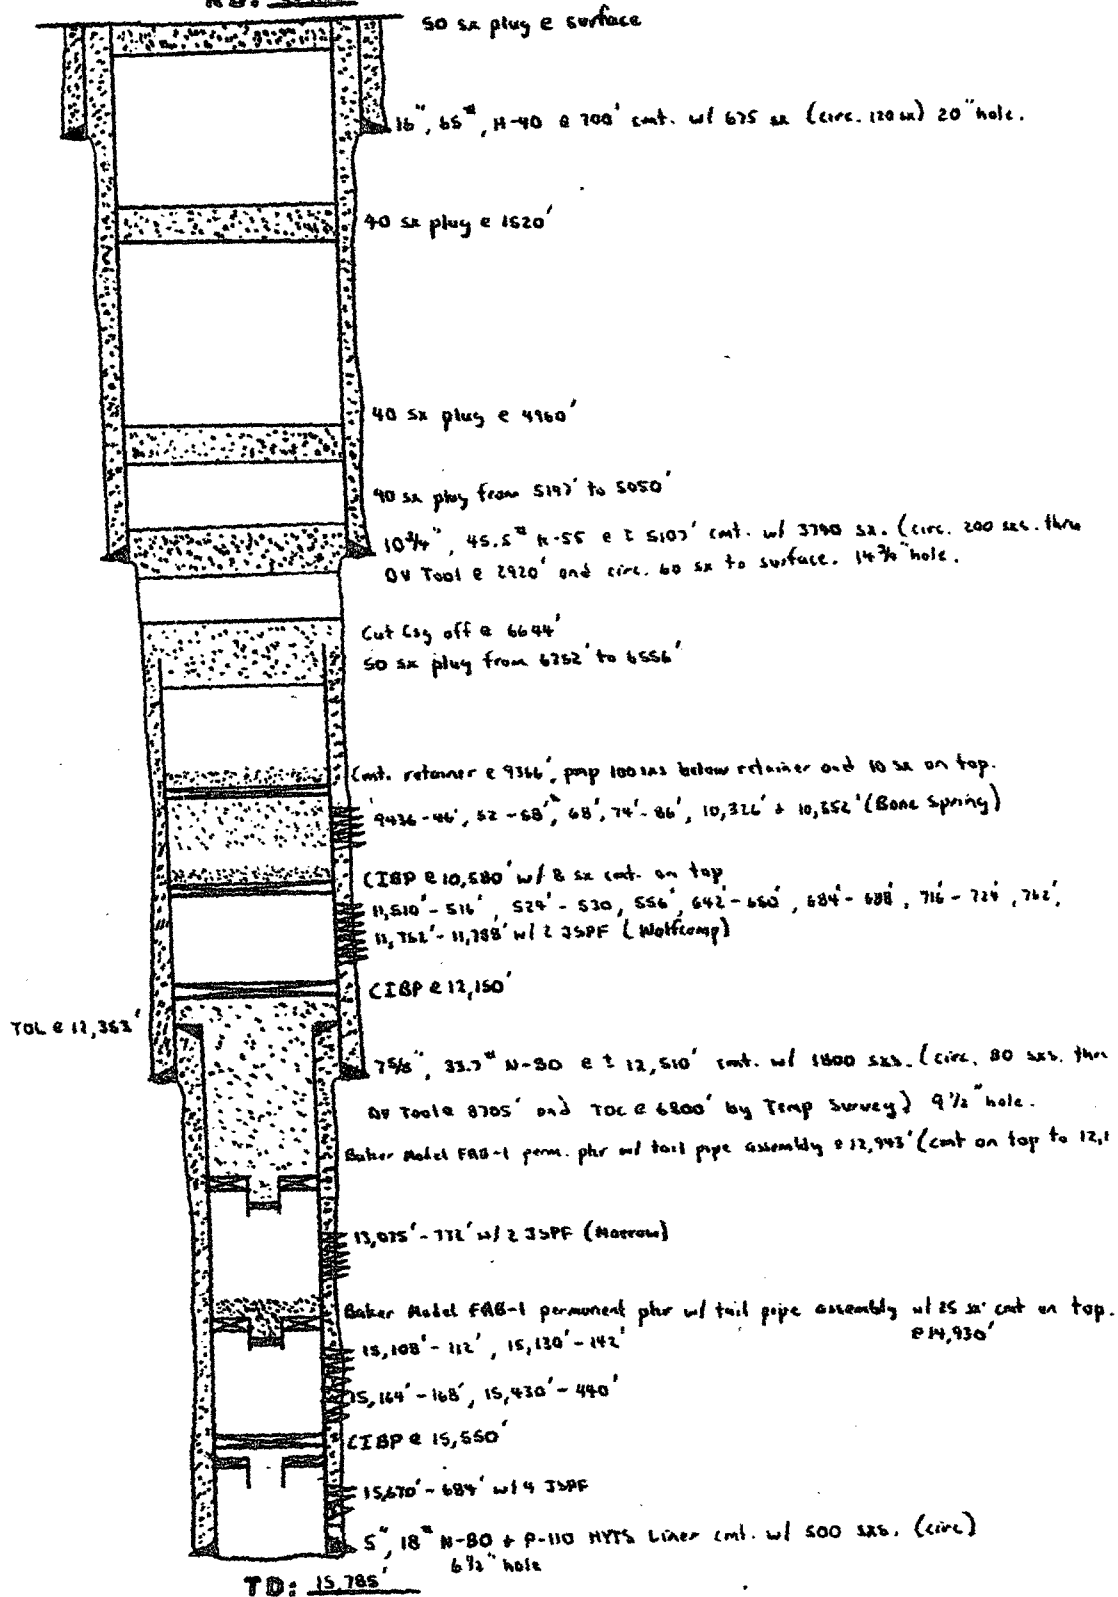 50 sx plug @ surface
16", 65#, H-40 @ 700' cmt. w/ 675 sx (circ. 120 sx) 20" hole.
40 sx plug @ 1520'
40 sx plug @ 4960'
40 sx plug from 5197' to 5050'
10 3/4", 45.5# K-55 @ ± 5107' cmt. w/ 3740 sx. (circ. 200 sxs. thru
DV Tool @ 2920' and circ. 60 sx to surface. 14 3/4" hole.
Cut Csg off @ 6644'
50 sx plug from 6752' to 6556'
Cmt. retainer @ 9366', pmp 100 sxs below retainer and 10 sx on top.
9436-46', 52-58', 68', 74'-86', 10,326' + 10,352' (Bone Spring)
CIBP @ 10,580' w/ 8 sx cmt. on top
11,510'-516', 524'-530, 556', 642'-650', 684'-688', 716'-724', 762',
11,762'-11,788' w/ 2 JSPF (Wolfcamp)
CIBP @ 12,150'
TOL @ 12,353'
7 5/8", 33.7# N-80 @ ± 12,510' cmt. w/ 1800 sxs. (circ. 80 sxs. thru
DV Tool @ 8705' and TOC @ 6800' by Temp Survey) 9 1/2" hole.
Baker Model FAB-1 perm. pkr w/ tail pipe assembly @ 12,943' (cmt on top to 12,1
13,075'-772' w/ 2 JSPF (Morrow)
Baker Model FAB-1 permanent pkr w/ tail pipe assembly w/ 25 sx cmt on top.
@ 14,930'
15,108'-112', 15,130'-142'
15,164'-168', 15,430'-440'
CIBP @ 15,550'
15,670'-684' w/ 4 JSPF
5", 18# N-80 + P-110 HYTS Liner cmt. w/ 500 sxs. (circ)
6 1/2" hole
TD: 15,785'